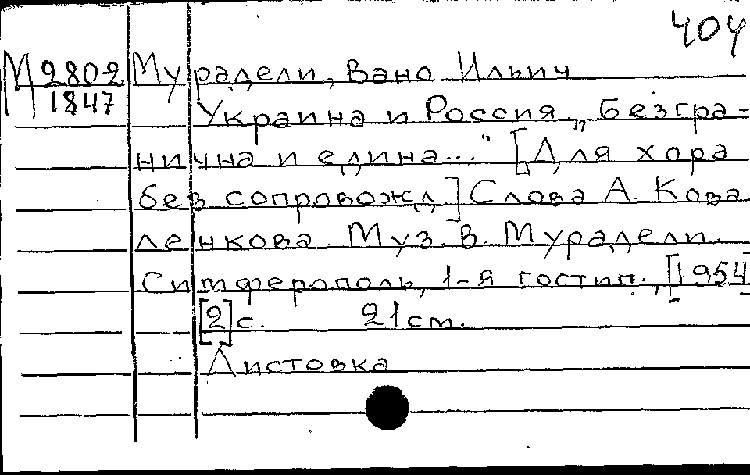 404
М 2802 Мурадели, Вано Ильич
1847 Украина и Россия „Безгра-
нична и едина..." [Для хора
без сопровожд] Слова А. Кова
ленкова Муз. В. Мурадели.
Симферополь, 1-я гостип., [1954]
[2] с. 21 см.
Листовка